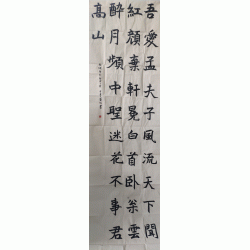 吾愛孟夫子風流天下聞
紅顔棄軒冕白首臥雲
醉月頻中聖迷花不事君
高山